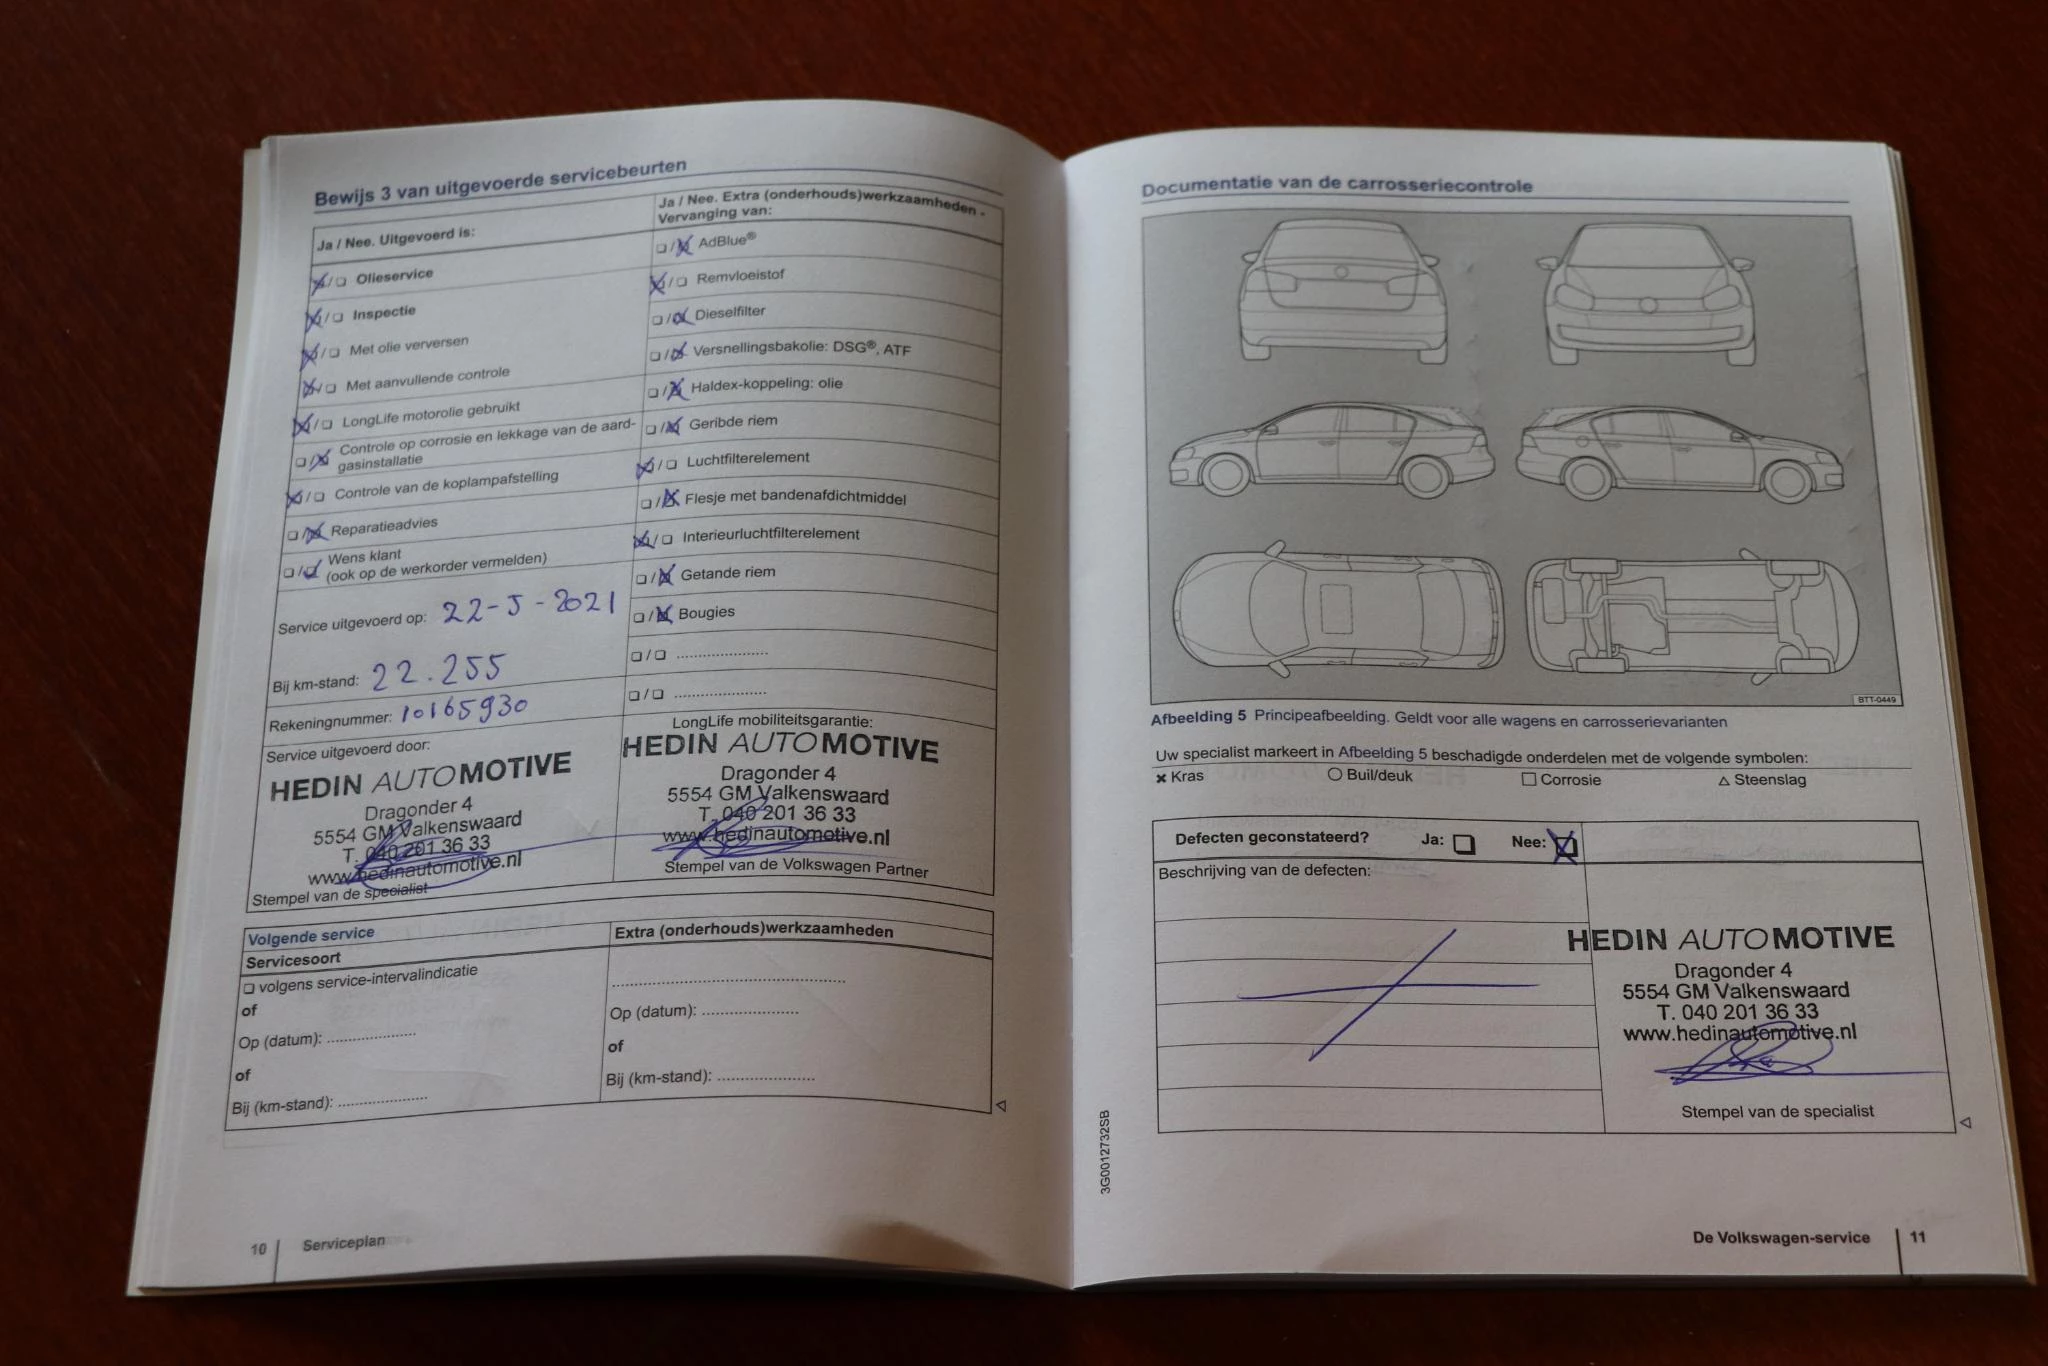 Bewijs 3 van uitgevoerde servicebeurten
Ja / Nee. Uitgevoerd is:
Olieservice
Inspectie
Met olie verversen
Met aanvullende controle
LongLife motorolie gebruikt
Controle op corrosie en lekkage van de aard-
gasinstallatie
Controle van de koplampafstelling
Reparatieadvies
Wens klant
(ook op de werkorder vermelden)
Service uitgevoerd op: 22-5-2021
Bij km-stand: 22.255
Rekeningnummer: 10165930
Service uitgevoerd door:
HEDIN AUTOMOTIVE
Dragonder 4
5554 GM Valkenswaard
T. 040 201 36 33
www.hedinautomotive.nl
Stempel van de specialist
Ja / Nee. Extra (onderhouds)werkzaamheden -
Vervanging van:
AdBlue®
Remvloeistof
Dieselfilter
Versnellingsbakolie: DSG®, ATF
Haldex-koppeling: olie
Geribde riem
Luchtfilterelement
Flesje met bandenafdichtmiddel
Interieurluchtfilterelement
Getande riem
Bougies
LongLife mobiliteitsgarantie:
HEDIN AUTOMOTIVE
Dragonder 4
5554 GM Valkenswaard
T. 040 201 36 33
www.hedinautomotive.nl
Stempel van de Volkswagen Partner
Volgende service
Servicesoort
volgens service-intervalindicatie
of
Op (datum): ....................
of
Bij (km-stand): ....................
Extra (onderhouds)werkzaamheden
Op (datum): ....................
of
Bij (km-stand): ....................
10 Serviceplan
Documentatie van de carrosseriecontrole
BTT-0449
Afbeelding 5 Principeafbeelding. Geldt voor alle wagens en carrosserievarianten
Uw specialist markeert in Afbeelding 5 beschadigde onderdelen met de volgende symbolen:
Kras Buil/deuk Corrosie Steenslag
Defecten geconstateerd? Ja: Nee:
Beschrijving van de defecten:
HEDIN AUTOMOTIVE
Dragonder 4
5554 GM Valkenswaard
T. 040 201 36 33
www.hedinautomotive.nl
Stempel van de specialist
3G0012732SB
De Volkswagen-service 11